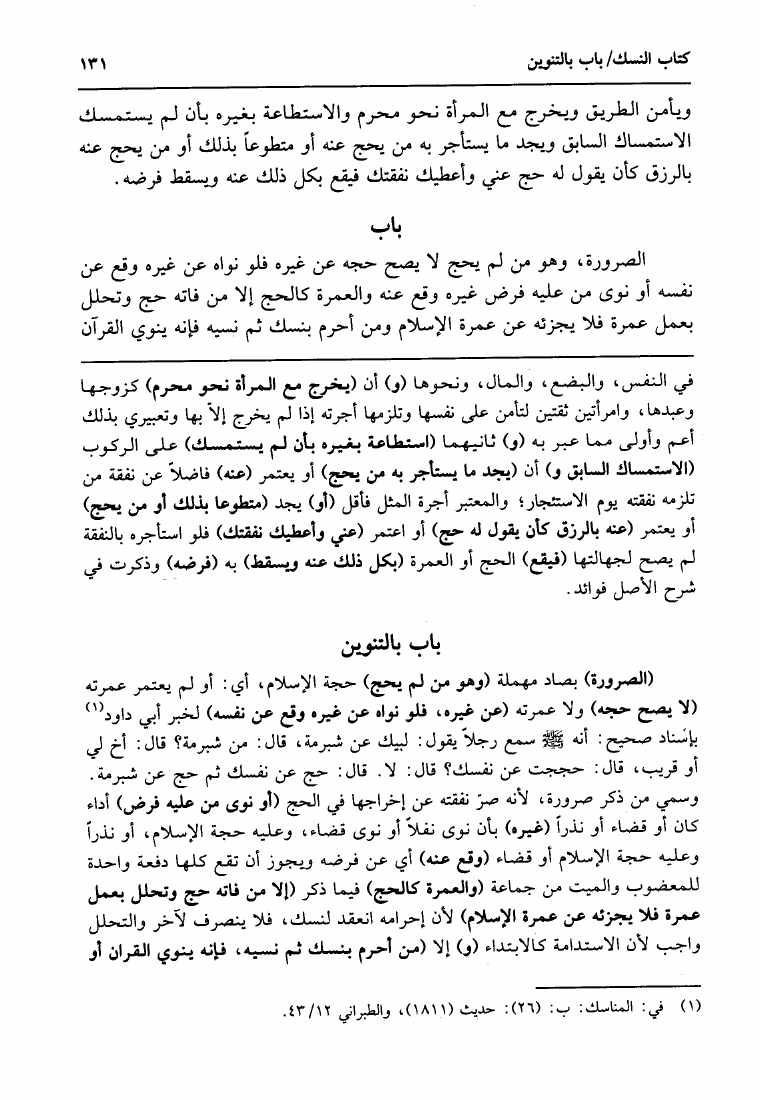 كتاب النسك/ باب بالتنوين
١٣١
ويأمن الطريق ويخرج مع المرأة نحو محرم والاستطاعة بغيره بأن لم يستمسك
الاستمساك السابق ويجد ما يستأجر به من يحج عنه أو متطوعاً بذلك أو من يحج عنه
بالرزق كأن يقول له حج عني وأعطيك نفقتك فيقع بكل ذلك عنه ويسقط فرضه.
باب
الصرورة، وهو من لم يحج لا يصح حجه عن غيره فلو نواه عن غيره وقع عن
نفسه أو نوى من عليه فرض غيره وقع عنه والعمرة كالحج إلا من فاته حج وتحلل
بعمل عمرة فلا يجزئه عن عمرة الإسلام ومن أحرم بنسك ثم نسيه فإنه ينوي القرآن
في النفس، والبضع، والمال، ونحوها (و) أن (يخرج مع المرأة نحو محرم) كزوجها
وعبدها، وامرأتين ثقتين لتأمن على نفسها وتلزمها أجرته إذا لم يخرج إلاّ بها وتعبيري بذلك
أعم وأولى مما عبر به (و) ثانيهما (استطاعة بغيره بأن لم يستمسك) على الركوب
(الاستمساك السابق و) أن (يجد ما يستأجر به من يحج) أو يعتمر (عنه) فاضلاً عن نفقة من
تلزمه نفقته يوم الاستئجار؛ والمعتبر أجرة المثل فأقل (أو) يجد (متطوعا بذلك أو من يحج)
أو يعتمر (عنه بالرزق كأن يقول له حج) أو اعتمر (عني وأعطيك نفقتك) فلو استأجره بالنفقة
لم يصح لجهالتها (فيقع) الحج أو العمرة (بكل ذلك عنه ويسقط) به (فرضه) وذكرت في
شرح الأصل فوائد.
باب بالتنوين
(الصرورة) بصاد مهملة (وهو من لم يحج) حجة الإسلام، أي: أو لم يعتمر عمرته
(لا يصح حجه) ولا عمرته (عن غيره، فلو نواه عن غيره وقع عن نفسه) لخبر أبي داود(١)
بإسناد صحيح: أنه ﷺ سمع رجلاً يقول: لبيك عن شبرمة، قال: من شبرمة؟ قال: أخ لي
أو قريب، قال: حججت عن نفسك؟ قال: لا. قال: حج عن نفسك ثم حج عن شبرمة.
وسمي من ذكر صرورة، لأنه صرّ نفقته عن إخراجها في الحج (أو نوى من عليه فرض) أداء
كان أو قضاء أو نذراً (غيره) بأن نوى نفلاً أو نوى قضاء، وعليه حجة الإسلام، أو نذراً
وعليه حجة الإسلام أو قضاء (وقع عنه) أي عن فرضه ويجوز أن تقع كلها دفعة واحدة
للمعضوب والميت من جماعة (والعمرة كالحج) فيما ذكر (إلا من فاته حج وتحلل بعمل
عمرة فلا يجزئه عن عمرة الإسلام) لأن إحرامه انعقد لنسك، فلا ينصرف لآخر والتحلل
واجب لأن الاستدامة كالابتداء (و) إلا (من أحرم بنسك ثم نسيه، فإنه ينوي القران أو
(١) في: المناسك: ب: (٢٦): حديث (١٨١١)، والطبراني ٤٣/١٢.